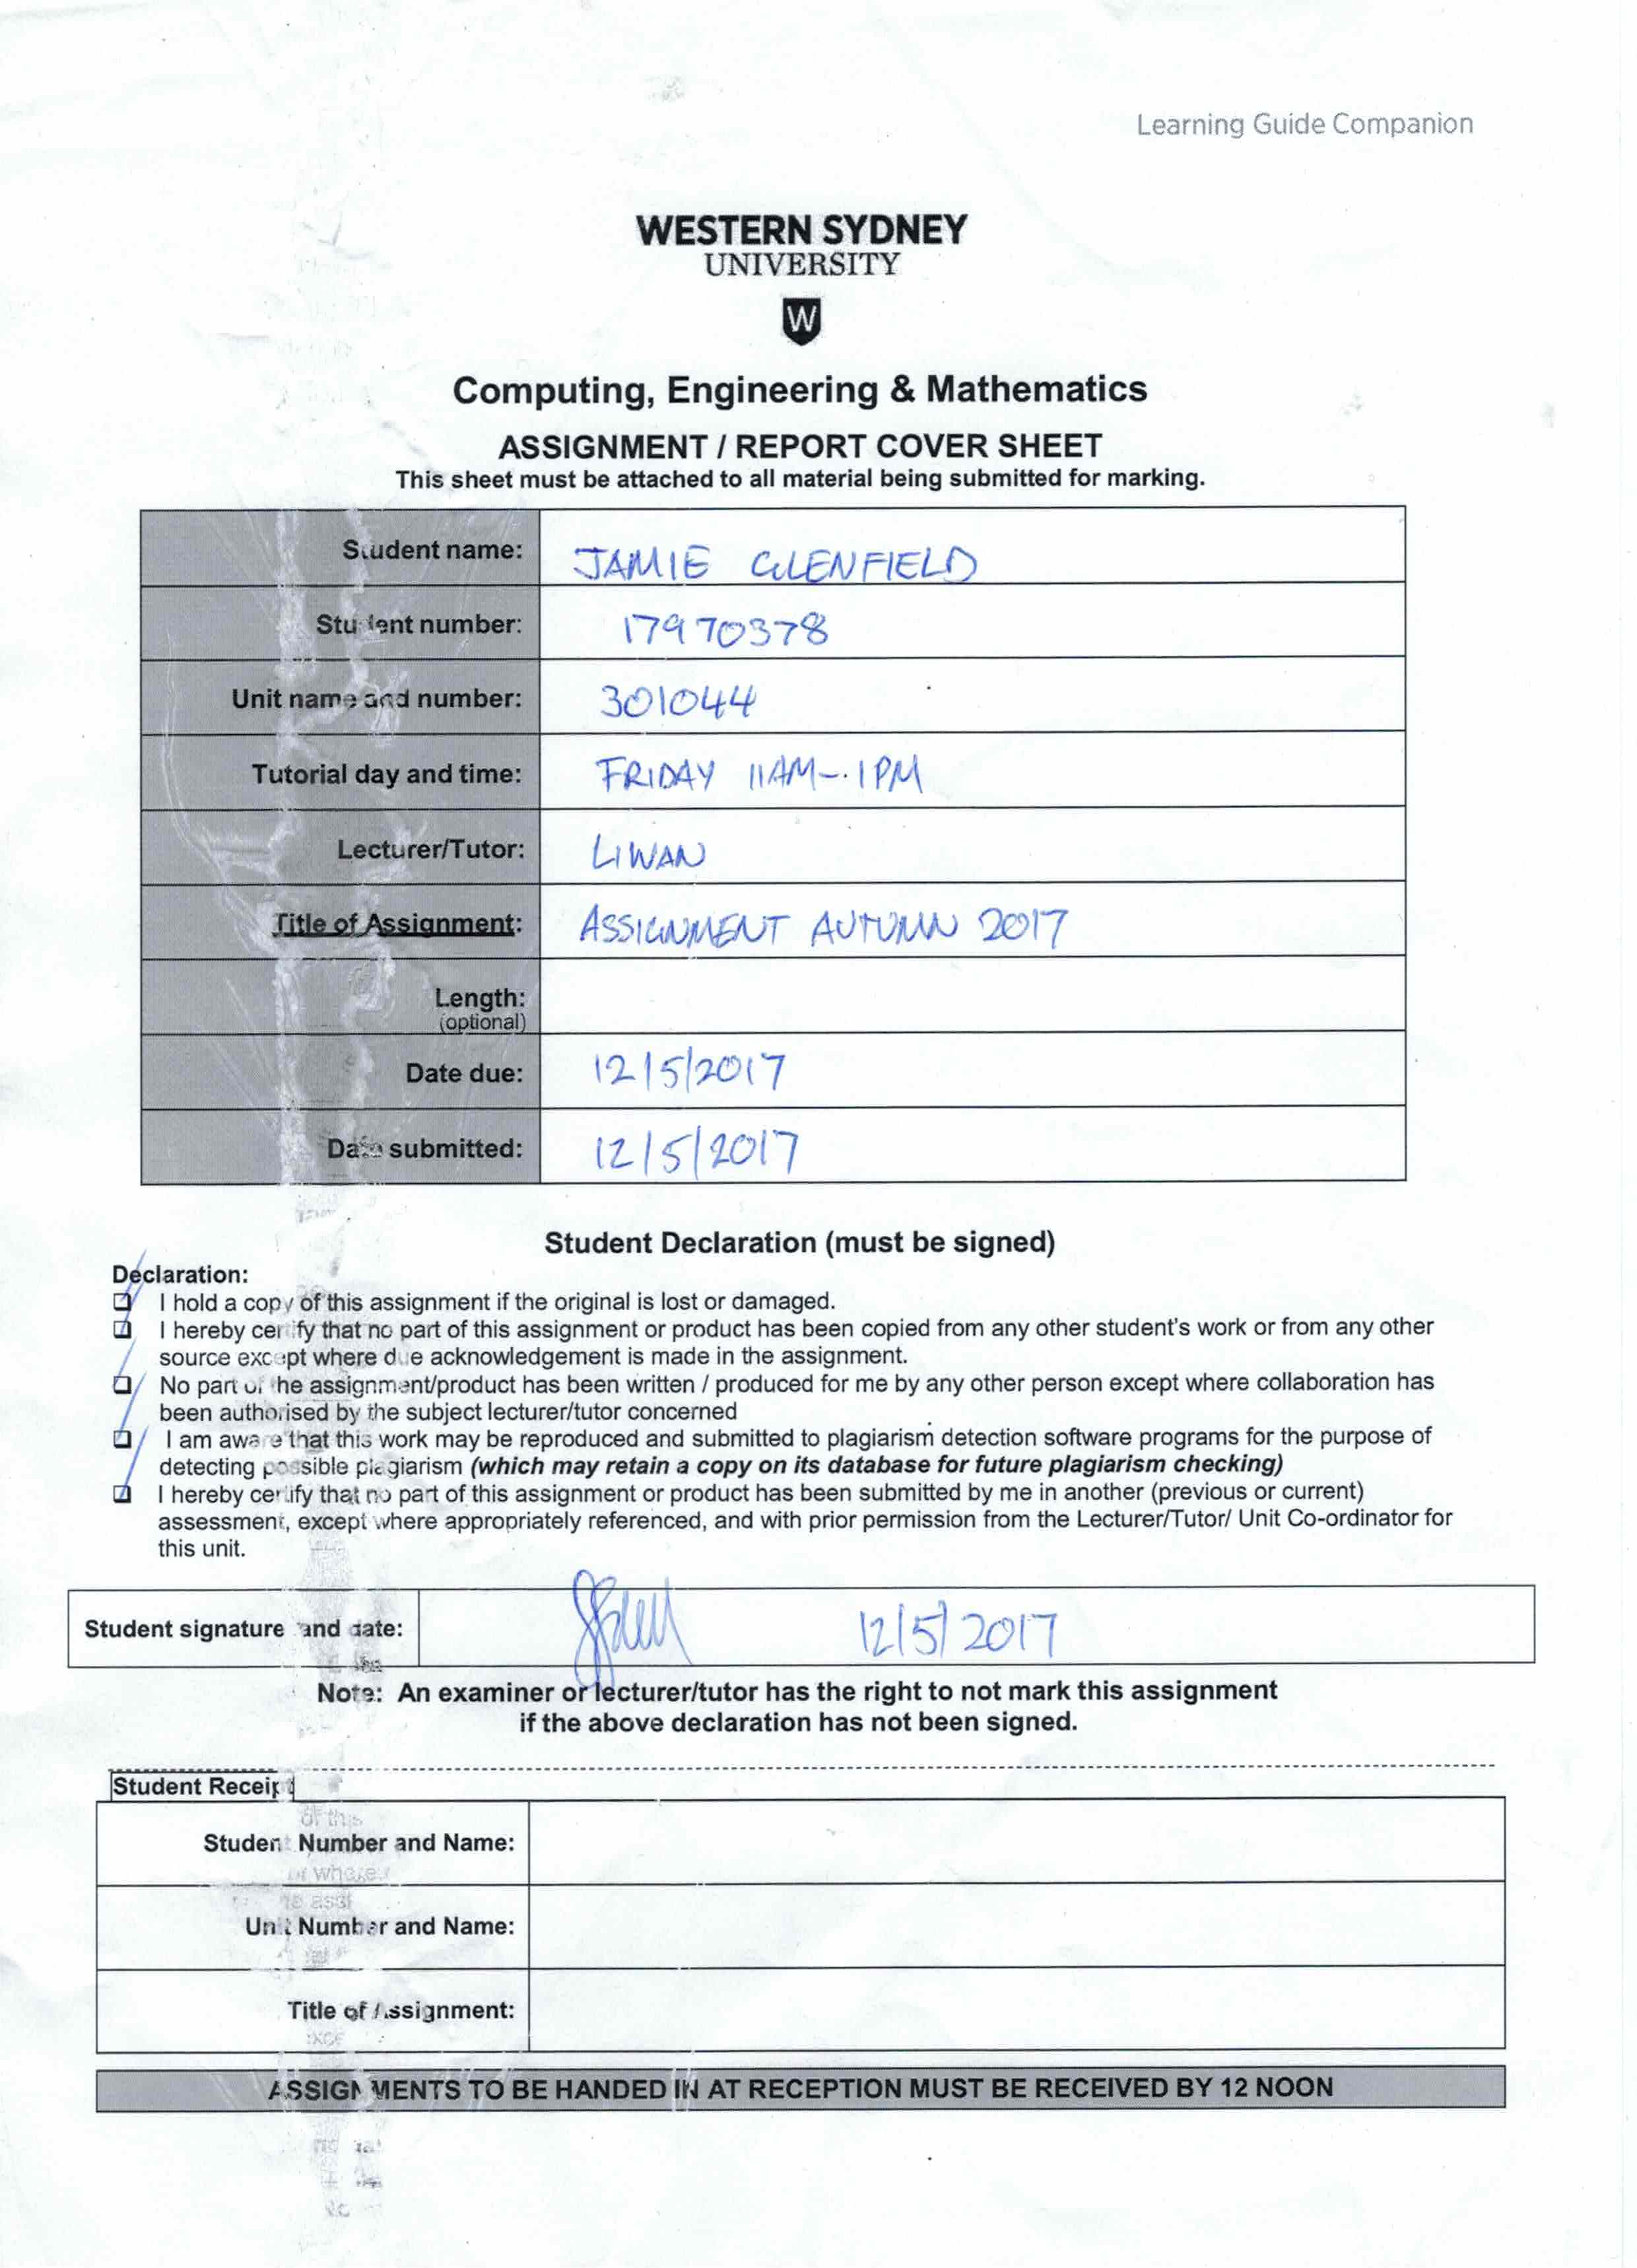 Learning Guide Companion
WESTERN SYDNEY
UNIVERSITY
W
Computing, Engineering & Mathematics
ASSIGNMENT / REPORT COVER SHEET
This sheet must be attached to all material being submitted for marking.
Student name: JAMIE GLENFIELD
Student number: 17970378
Unit name and number: 301044
Tutorial day and time: FRIDAY 11AM-1PM
Lecturer/Tutor: LIWAN
Title of Assignment: ASSIGNMENT AUTUMN 2017
Length:
(optional)
Date due: 12/5/2017
Date submitted: 12/5/2017
Student Declaration (must be signed)
Declaration:
I hold a copy of this assignment if the original is lost or damaged.
I hereby certify that no part of this assignment or product has been copied from any other student's work or from any other
source except where due acknowledgement is made in the assignment.
No part of the assignment/product has been written / produced for me by any other person except where collaboration has
been authorised by the subject lecturer/tutor concerned
I am aware that this work may be reproduced and submitted to plagiarism detection software programs for the purpose of
detecting possible plagiarism (which may retain a copy on its database for future plagiarism checking)
I hereby certify that no part of this assignment or product has been submitted by me in another (previous or current)
assessment, except where appropriately referenced, and with prior permission from the Lecturer/Tutor/ Unit Co-ordinator for
this unit.
Student signature and date: 12/5/2017
Note: An examiner or lecturer/tutor has the right to not mark this assignment
if the above declaration has not been signed.
Student Receipt
Student Number and Name:
Unit Number and Name:
Title of Assignment:
ASSIGNMENTS TO BE HANDED IN AT RECEPTION MUST BE RECEIVED BY 12 NOON